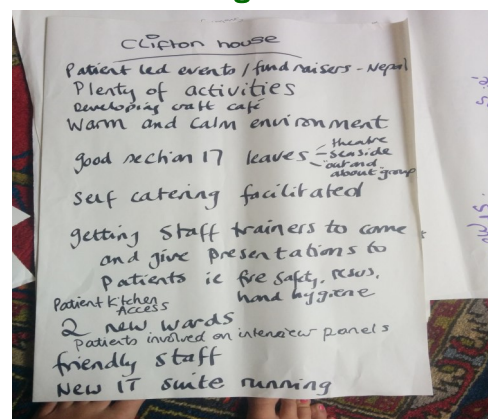 Clifton house
Patient led events / fund raisers - Nepal
Plenty of activities
Developing craft café
Warm and calm environment
good section 17 leaves - theatre
- seaside
- out and
about group
self catering facilitated
getting staff trainers to come
and give presentations to
patients ie fire safety, resus,
hand hygiene
Patient Kitchen
Access
2 new wards
Patients involved on interview panels
friendly staff
New IT suite running